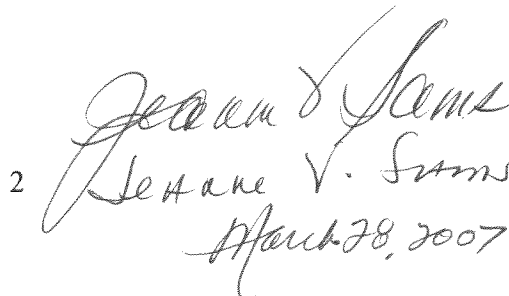 Jeanne V Sams
2 Jeanne V. Sams
March 28, 2007